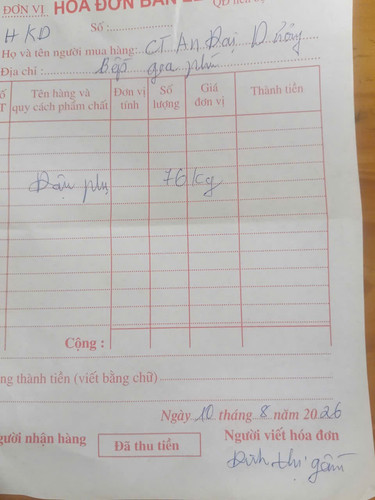 ĐƠN VỊ HÓA ĐƠN BÁN LẺ
HKD Số :
Họ và tên người mua hàng: CT An Đại Dũng
Địa chỉ : Bếp gia phú
Tên hàng và quy cách phẩm chất Đơn vị tính Số lượng Giá đơn vị Thành tiền
Đậu phụ 76 kg
Cộng :
ng thành tiền (viết bằng chữ)
Ngày 10 tháng 8 năm 2026
gười nhận hàng Đã thu tiền Người viết hóa đơn
Đinh thị gấm